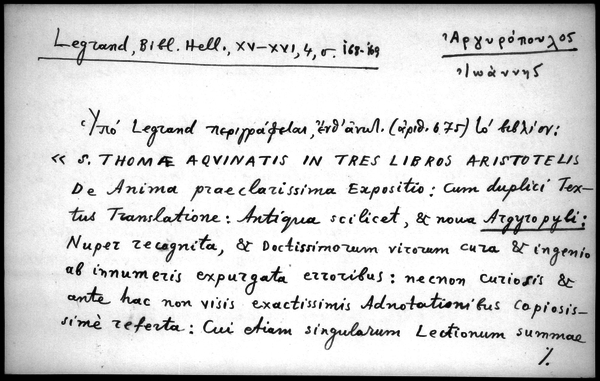 Legrand, Bibl. Hell., XV–XVI, 4, σ. 168-169
Ἀργυρόπουλος
Ἰωάννης
Ὑπό Legrand περιγράφεται, ἔνθ' ἀνωτ. (ἀριθ. 675) τό βιβλίον:
« S. THOMÆ AQVINATIS IN TRES LIBROS ARISTOTELIS
De Anima praeclarissima Expositio: Cum duplici Tex-
tus Translatione: Antiqua scilicet, & noua Argyropyli:
Nuper recognita, & Doctissimorum virorum cura & ingenio
ab innumeris expurgata erroribus: necnon curiosis &
ante hac non visis exactissimis Adnotationibus copiosis-
simè referta: Cui etiam singularum Lectionum summae
%.